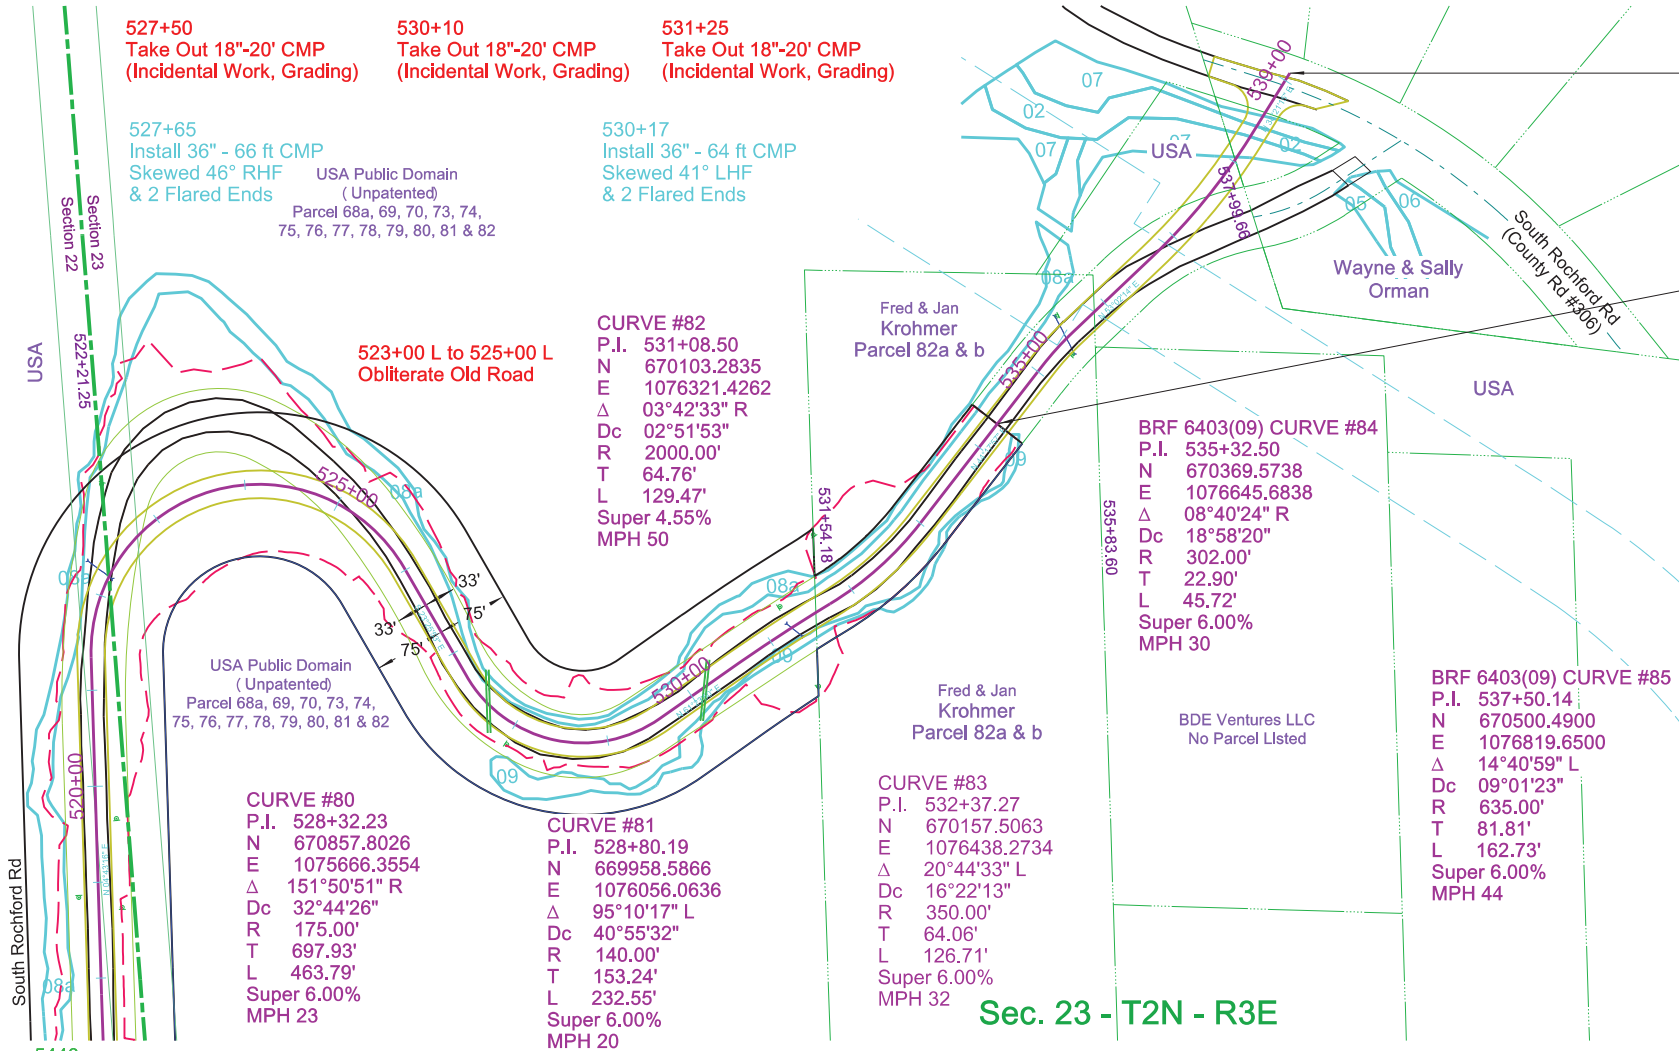 527+50
Take Out 18"-20' CMP
(Incidental Work, Grading)
530+10
Take Out 18"-20' CMP
(Incidental Work, Grading)
531+25
Take Out 18"-20' CMP
(Incidental Work, Grading)
527+65
Install 36" - 66 ft CMP
Skewed 46° RHF
& 2 Flared Ends
530+17
Install 36" - 64 ft CMP
Skewed 41° LHF
& 2 Flared Ends
USA Public Domain
( Unpatented)
Parcel 68a, 69, 70, 73, 74,
75, 76, 77, 78, 79, 80, 81 & 82
USA
Section 22
Section 23
522+21.25
USA
523+00 L to 525+00 L
Obliterate Old Road
CURVE #82
P.I. 531+08.50
N 670103.2835
E 1076321.4262
Δ 03°42'33" R
Dc 02°51'53"
R 2000.00'
T 64.76'
L 129.47'
Super 4.55%
MPH 50
Fred & Jan
Krohmer
Parcel 82a & b
07
02
07
07
02
USA
539+00
537+99.66
05
06
Wayne & Sally
Orman
South Rochford Rd
(County Rd #306)
08a
535+00
USA
BRF 6403(09) CURVE #84
P.I. 535+32.50
N 670369.5738
E 1076645.6838
Δ 08°40'24" R
Dc 18°58'20"
R 302.00'
T 22.90'
L 45.72'
Super 6.00%
MPH 30
525+00
08a
09
531+54.18
535+83.60
08a
33'
75'
33'
75'
08a
09
530+00
09
USA Public Domain
( Unpatented)
Parcel 68a, 69, 70, 73, 74,
75, 76, 77, 78, 79, 80, 81 & 82
Fred & Jan
Krohmer
Parcel 82a & b
BDE Ventures LLC
No Parcel LIsted
BRF 6403(09) CURVE #85
P.I. 537+50.14
N 670500.4900
E 1076819.6500
Δ 14°40'59" L
Dc 09°01'23"
R 635.00'
T 81.81'
L 162.73'
Super 6.00%
MPH 44
520+00
N 04°43'16" E
South Rochford Rd
08a
CURVE #80
P.I. 528+32.23
N 670857.8026
E 1075666.3554
Δ 151°50'51" R
Dc 32°44'26"
R 175.00'
T 697.93'
L 463.79'
Super 6.00%
MPH 23
CURVE #81
P.I. 528+80.19
N 669958.5866
E 1076056.0636
Δ 95°10'17" L
Dc 40°55'32"
R 140.00'
T 153.24'
L 232.55'
Super 6.00%
MPH 20
CURVE #83
P.I. 532+37.27
N 670157.5063
E 1076438.2734
Δ 20°44'33" L
Dc 16°22'13"
R 350.00'
T 64.06'
L 126.71'
Super 6.00%
MPH 32
Sec. 23 - T2N - R3E